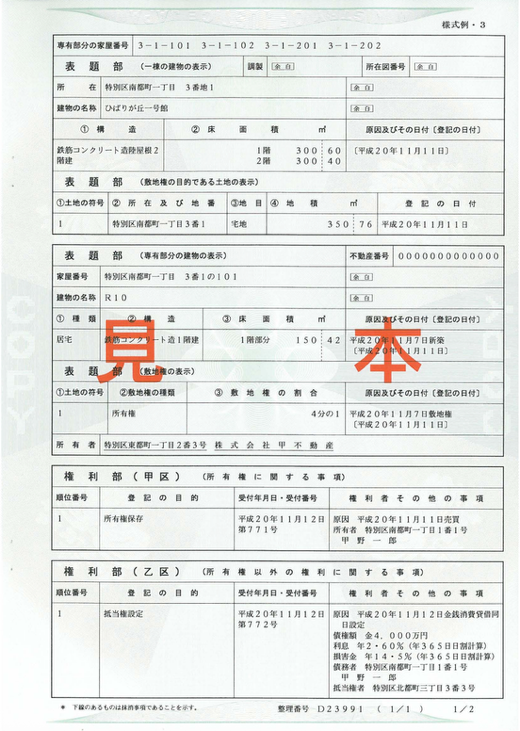 様式例・3
専有部分の家屋番号 3-1-101 3-1-102 3-1-201 3-1-202
表題部 (一棟の建物の表示) 調製 余白 所在図番号 余白
所在 特別区南都町一丁目 3番地1 余白
建物の名称 ひばりが丘一号館 余白
① 構造 ② 床面積 ㎡ 原因及びその日付〔登記の日付〕
鉄筋コンクリート造陸屋根2 1階 300 60 〔平成20年11月11日〕
階建 2階 300 40
表題部 (敷地権の目的である土地の表示)
①土地の符号 ② 所在及び地番 ③地目 ④ 地積 ㎡ 登記の日付
1 特別区南都町一丁目3番1 宅地 350 76 平成20年11月11日
表題部 (専有部分の建物の表示) 不動産番号 0000000000000
家屋番号 特別区南都町一丁目 3番1の101 余白
建物の名称 R10 余白
① 種類 ② 構造 ③ 床面積 ㎡ 原因及びその日付〔登記の日付〕
居宅 鉄筋コンクリート造1階建 1階部分 150 42 平成20年11月7日新築
〔平成20年11月11日〕
見本
表題部 (敷地権の表示)
①土地の符号 ②敷地権の種類 ③ 敷地権の割合 原因及びその日付〔登記の日付〕
1 所有権 4分の1 平成20年11月7日敷地権
〔平成20年11月11日〕
所有者 特別区東都町一丁目2番3号 株式会社甲不動産
権利部(甲区) (所有権に関する事項)
順位番号 登記の目的 受付年月日・受付番号 権利者その他の事項
1 所有権保存 平成20年11月12日 原因 平成20年11月11日売買
第771号 所有者 特別区南都町一丁目1番1号
甲野一郎
権利部(乙区) (所有権以外の権利に関する事項)
順位番号 登記の目的 受付年月日・受付番号 権利者その他の事項
1 抵当権設定 平成20年11月12日 原因 平成20年11月12日金銭消費貸借同
第772号 日設定
債権額 金4,000万円
利息 年2・60%(年365日日割計算)
損害金 年14・5%(年365日日割計算)
債務者 特別区南都町一丁目1番1号
甲野一郎
抵当権者 特別区北都町三丁目3番3号
* 下線のあるものは抹消事項であることを示す。 整理番号 D23991 (1/1) 1/2
COPY